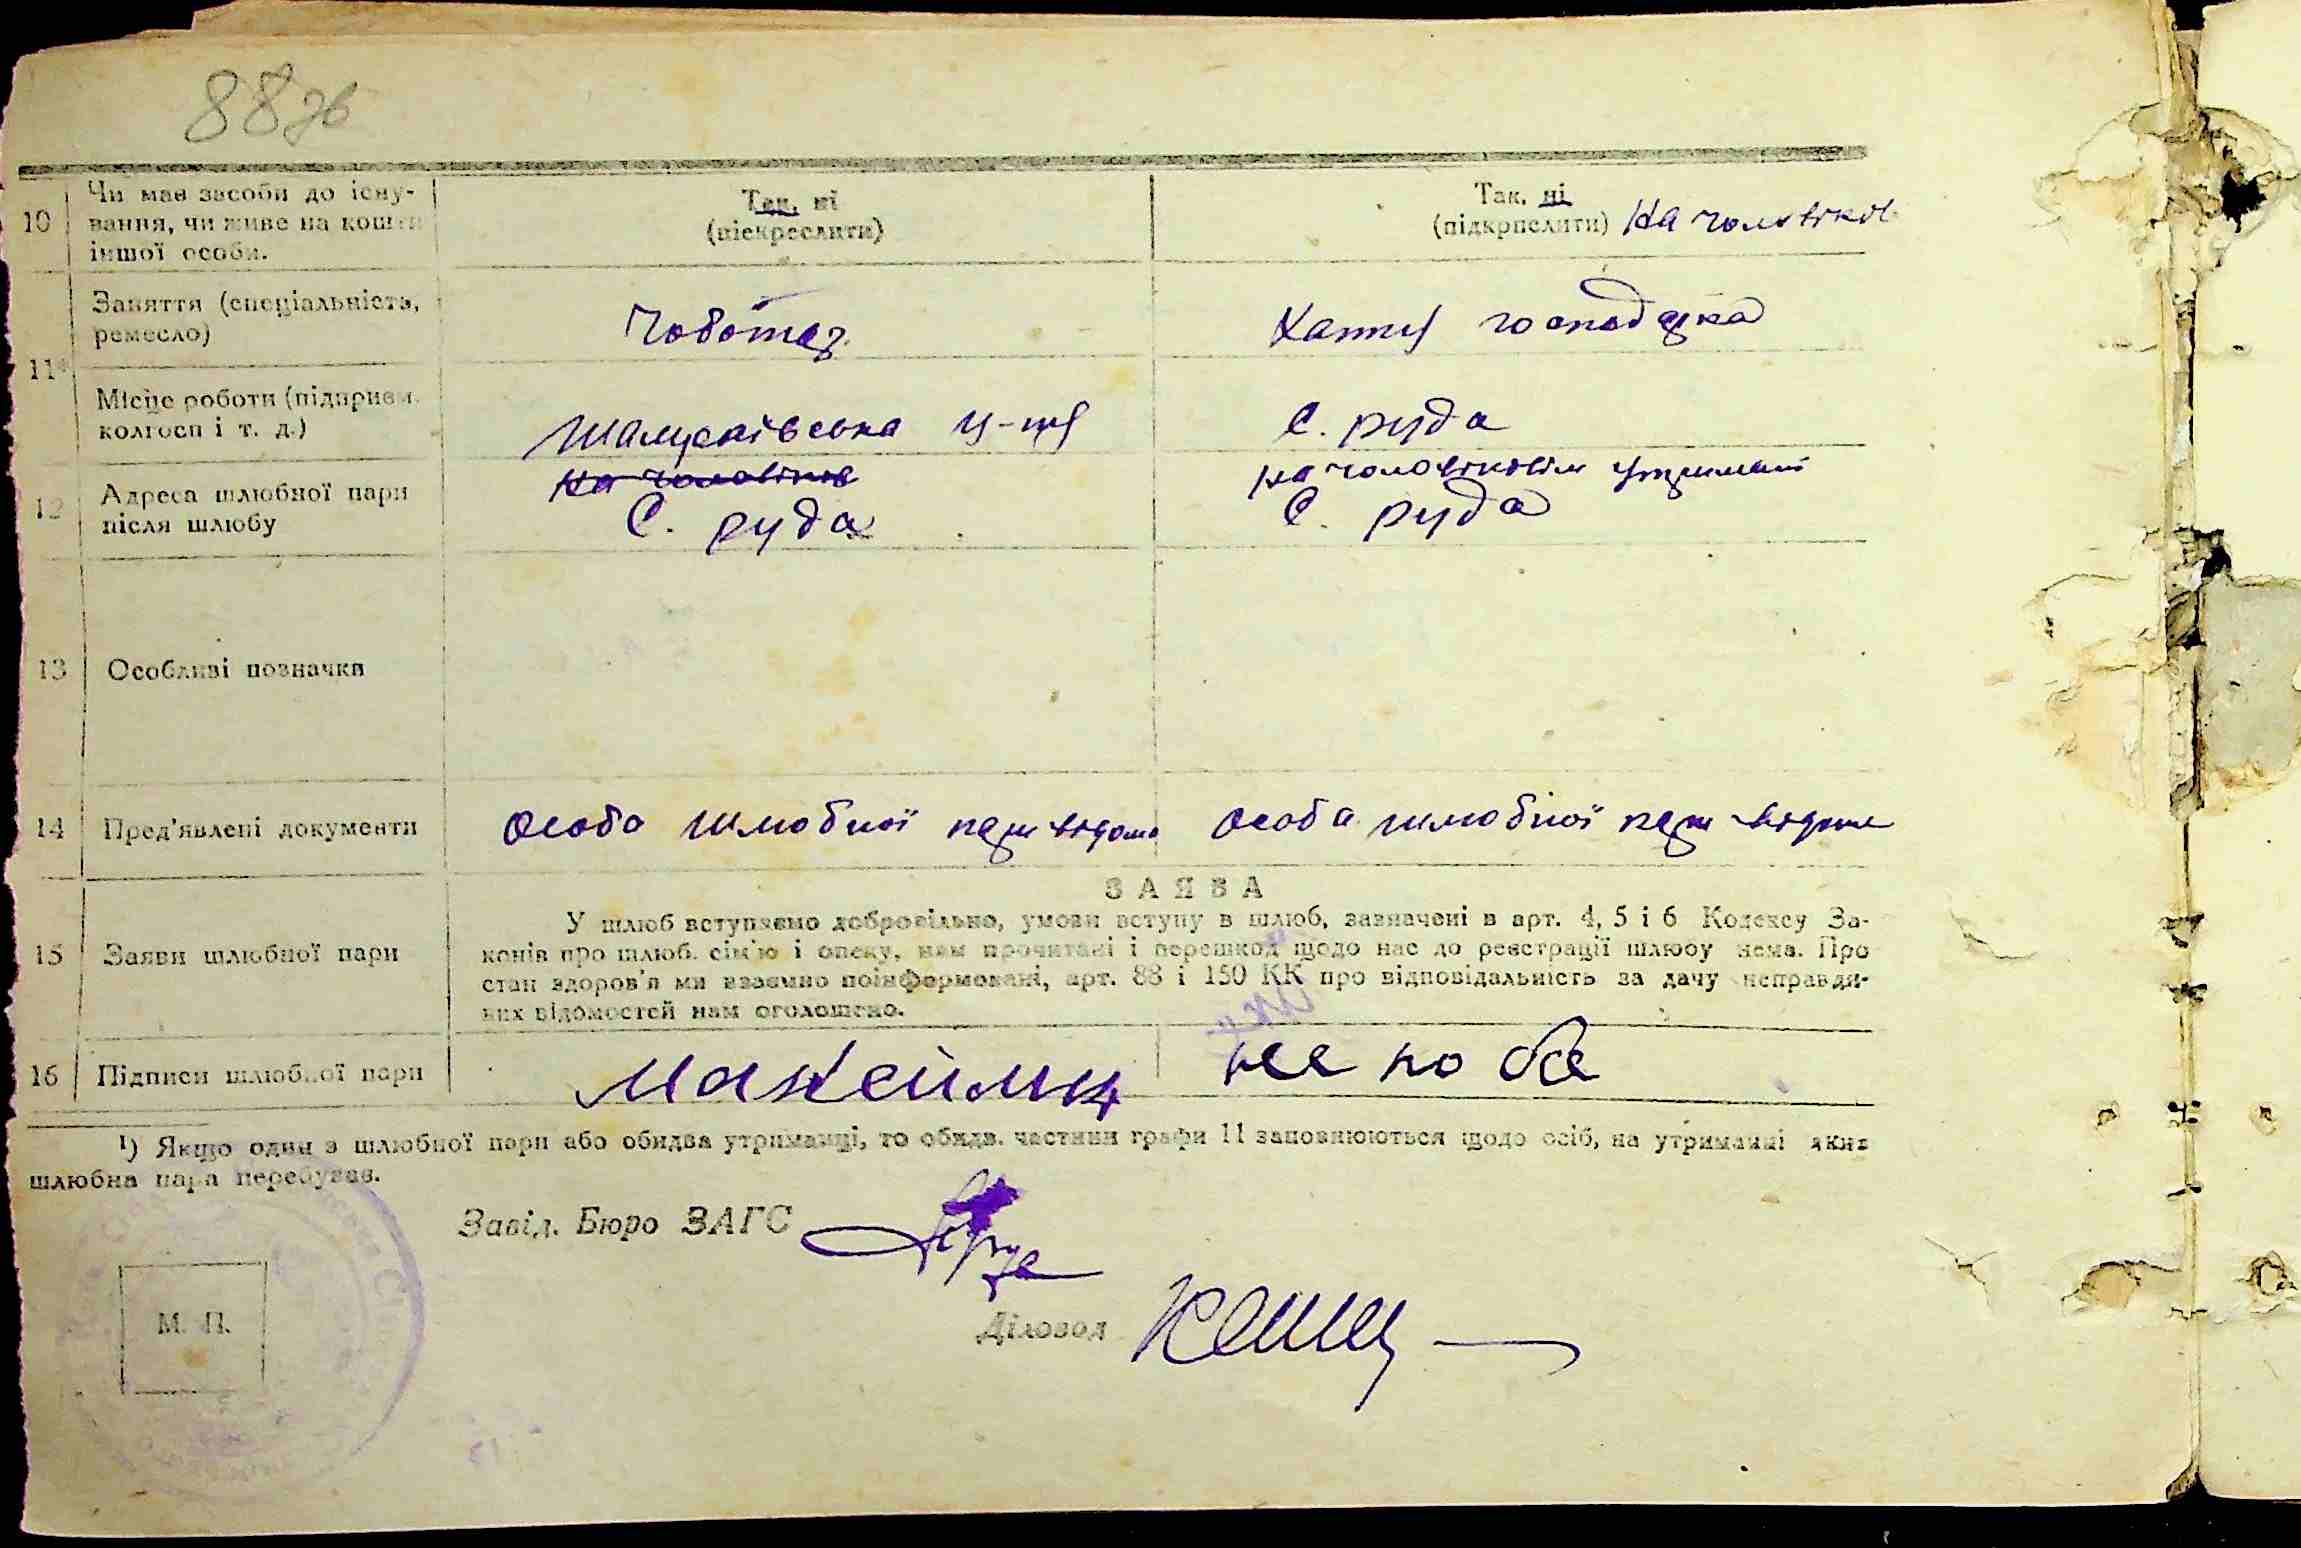 88 зв
10 Чи має засоби до існу-
вання, чи живе на кошти
іншої особи.
Так, ні
(підкреслити)
Так, ні
(підкрислити) на чоловіков
11¹ Заняття (спеціальність,
ремесло)
Чоботар
Хатня господарка
Місце роботи (підприєм.
колгосп і т. д.)
С. руда
12 Адреса шлюбної пари
після шлюбу
на чоловіков
С. руда
на чоловіковім утриманні
С. руда
13 Особливі позначки
14 Пред'явлені документи
особа шлюбної пари відома
особа шлюбної пари відома
15 Заяви шлюбної пари
ЗАЯВА
У шлюб вступаємо добровільно, умови вступу в шлюб, зазначені в арт. 4, 5 і 6 Кодексу За-
конів про шлюб. сім'ю і опеку, нам прочитані і перешкод щодо нас до реєстрації шлюбу нема. Про
стан здоров'я ми взаємно поінформовані, арт. 88 і 150 КК про відповідальність за дачу неправди-
вих відомостей нам оголошено.
16 Підписи шлюбної пари
¹) Якщо один з шлюбної пари або обидва утриманці, то обидв. частини графи 11 заповнюються щодо осіб, на утриманні яких
шлюбна пара перебуває.
Завід. Бюро ЗАГС
Діловод
М. П.